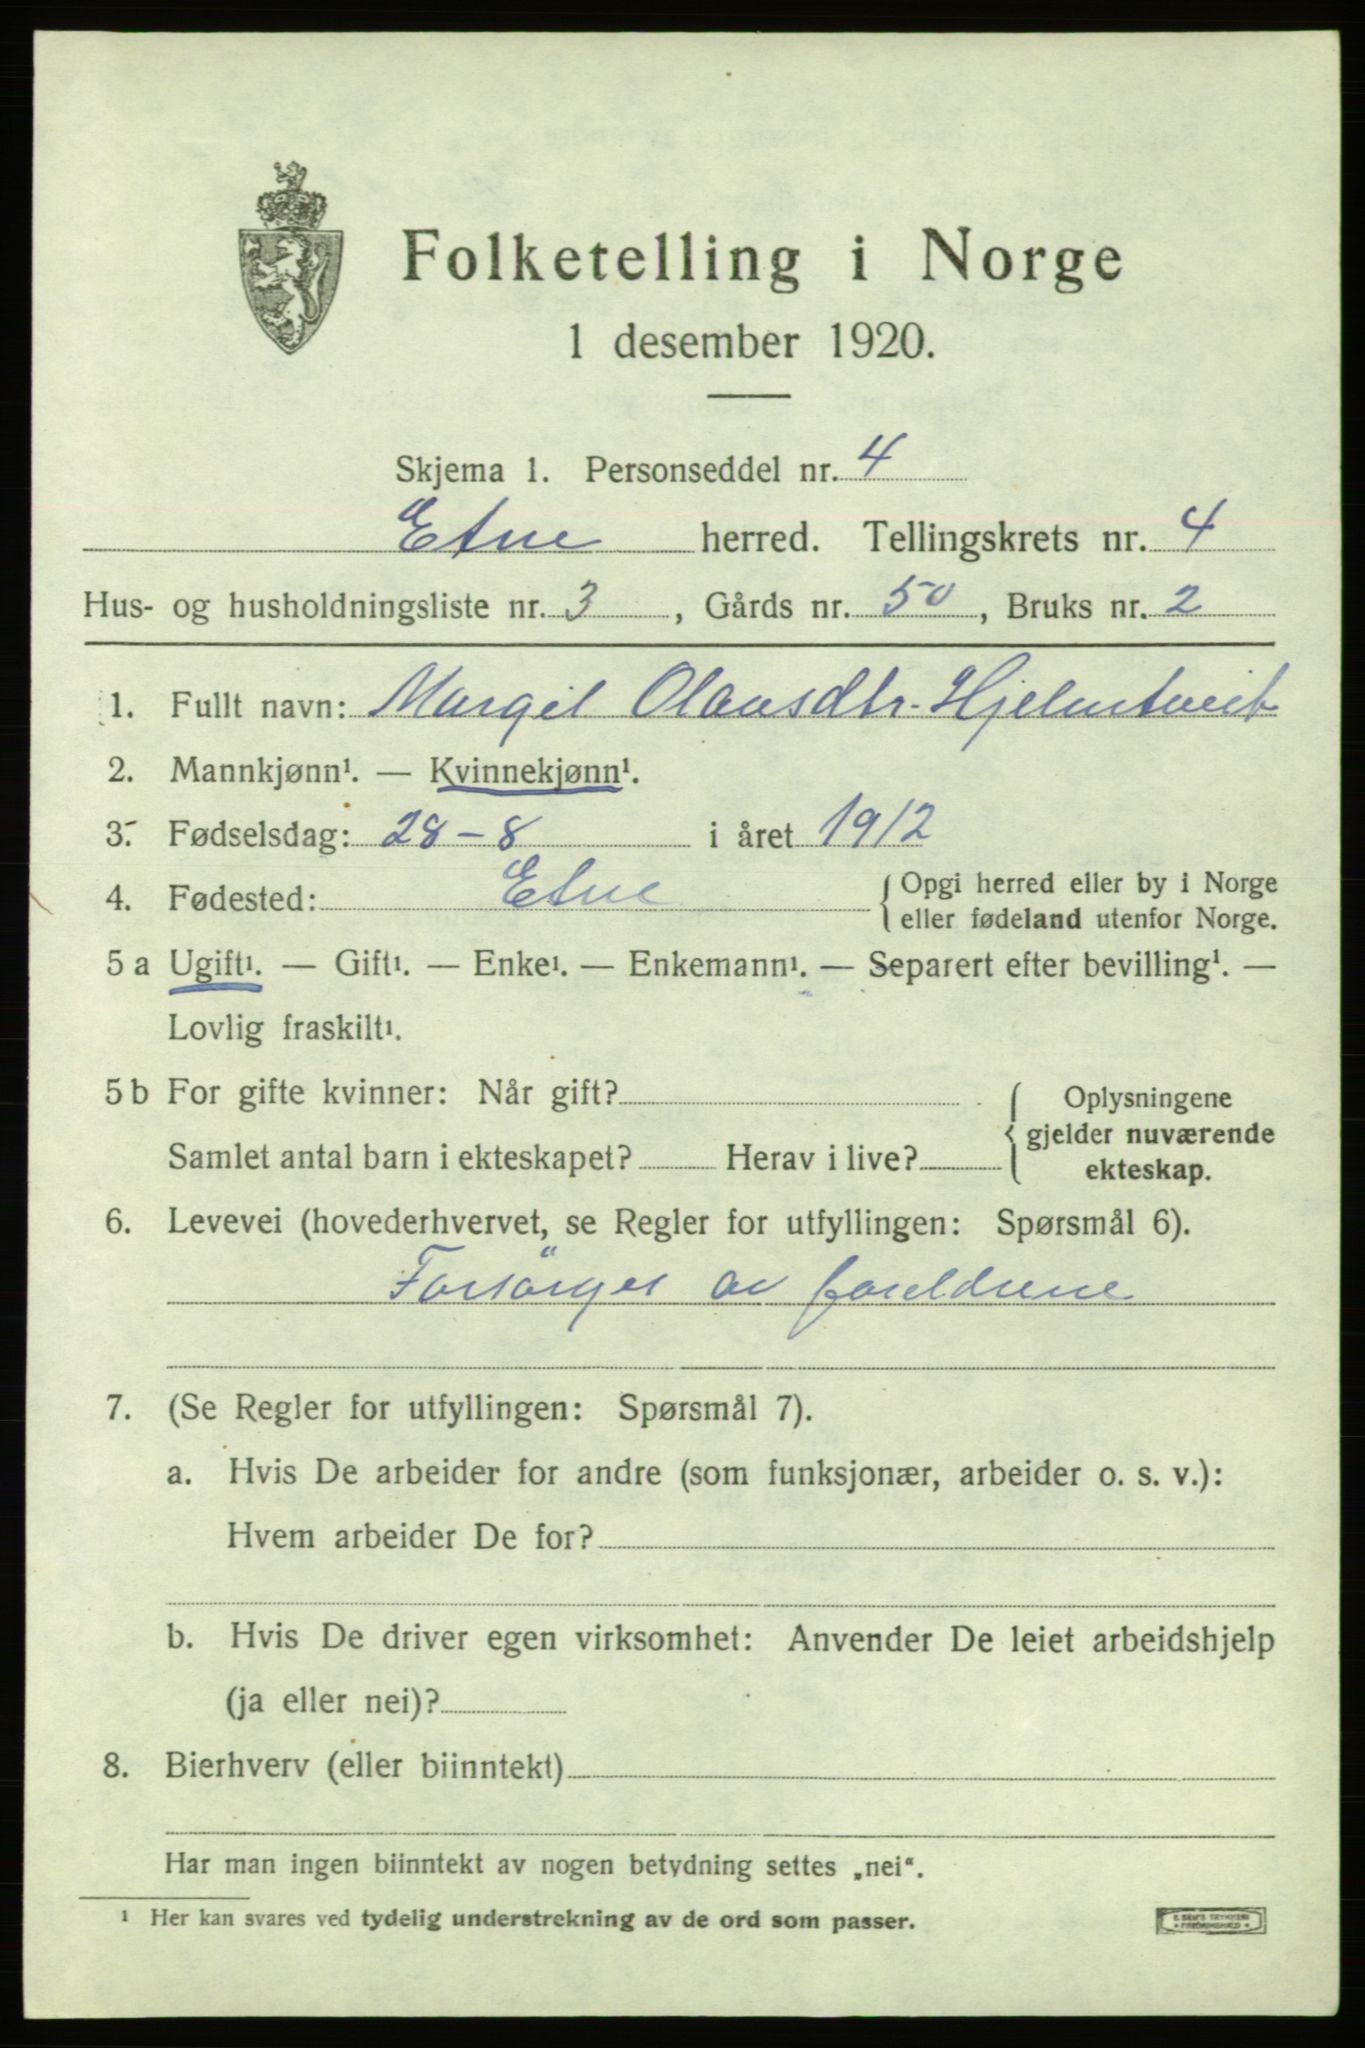 Folketelling i Norge
1 desember 1920.
Skjema 1. Personseddel nr. 4
Etne herred. Tellingskrets nr. 4
Hus- og husholdningsliste nr. 3, Gårds nr. 50, Bruks nr. 2
1. Fullt navn: Margit Olausdtr. Hjelmtveit
2. Mannkjønn¹. — Kvinnekjønn¹.
3. Fødselsdag: 28-8 i året 1912
4. Fødested: Etne {Opgi herred eller by i Norge
eller fødeland utenfor Norge.
5 a Ugift¹. — Gift¹. — Enke¹. — Enkemann¹. — Separert efter bevilling¹. —
Lovlig fraskilt¹.
5 b For gifte kvinner: Når gift?
Samlet antal barn i ekteskapet? Herav i live?
{Oplysningene
gjelder nuværende
ekteskap.
6. Levevei (hovederhvervet, se Regler for utfyllingen: Spørsmål 6).
Forsörges av foreldrene
7. (Se Regler for utfyllingen: Spørsmål 7).
a. Hvis De arbeider for andre (som funksjonær, arbeider o. s. v.):
Hvem arbeider De for?
b. Hvis De driver egen virksomhet: Anvender De leiet arbeidshjelp
(ja eller nei)?
8. Bierhverv (eller biinntekt)
Har man ingen biinntekt av nogen betydning settes „nei“.
¹ Her kan svares ved tydelig understrekning av de ord som passer.